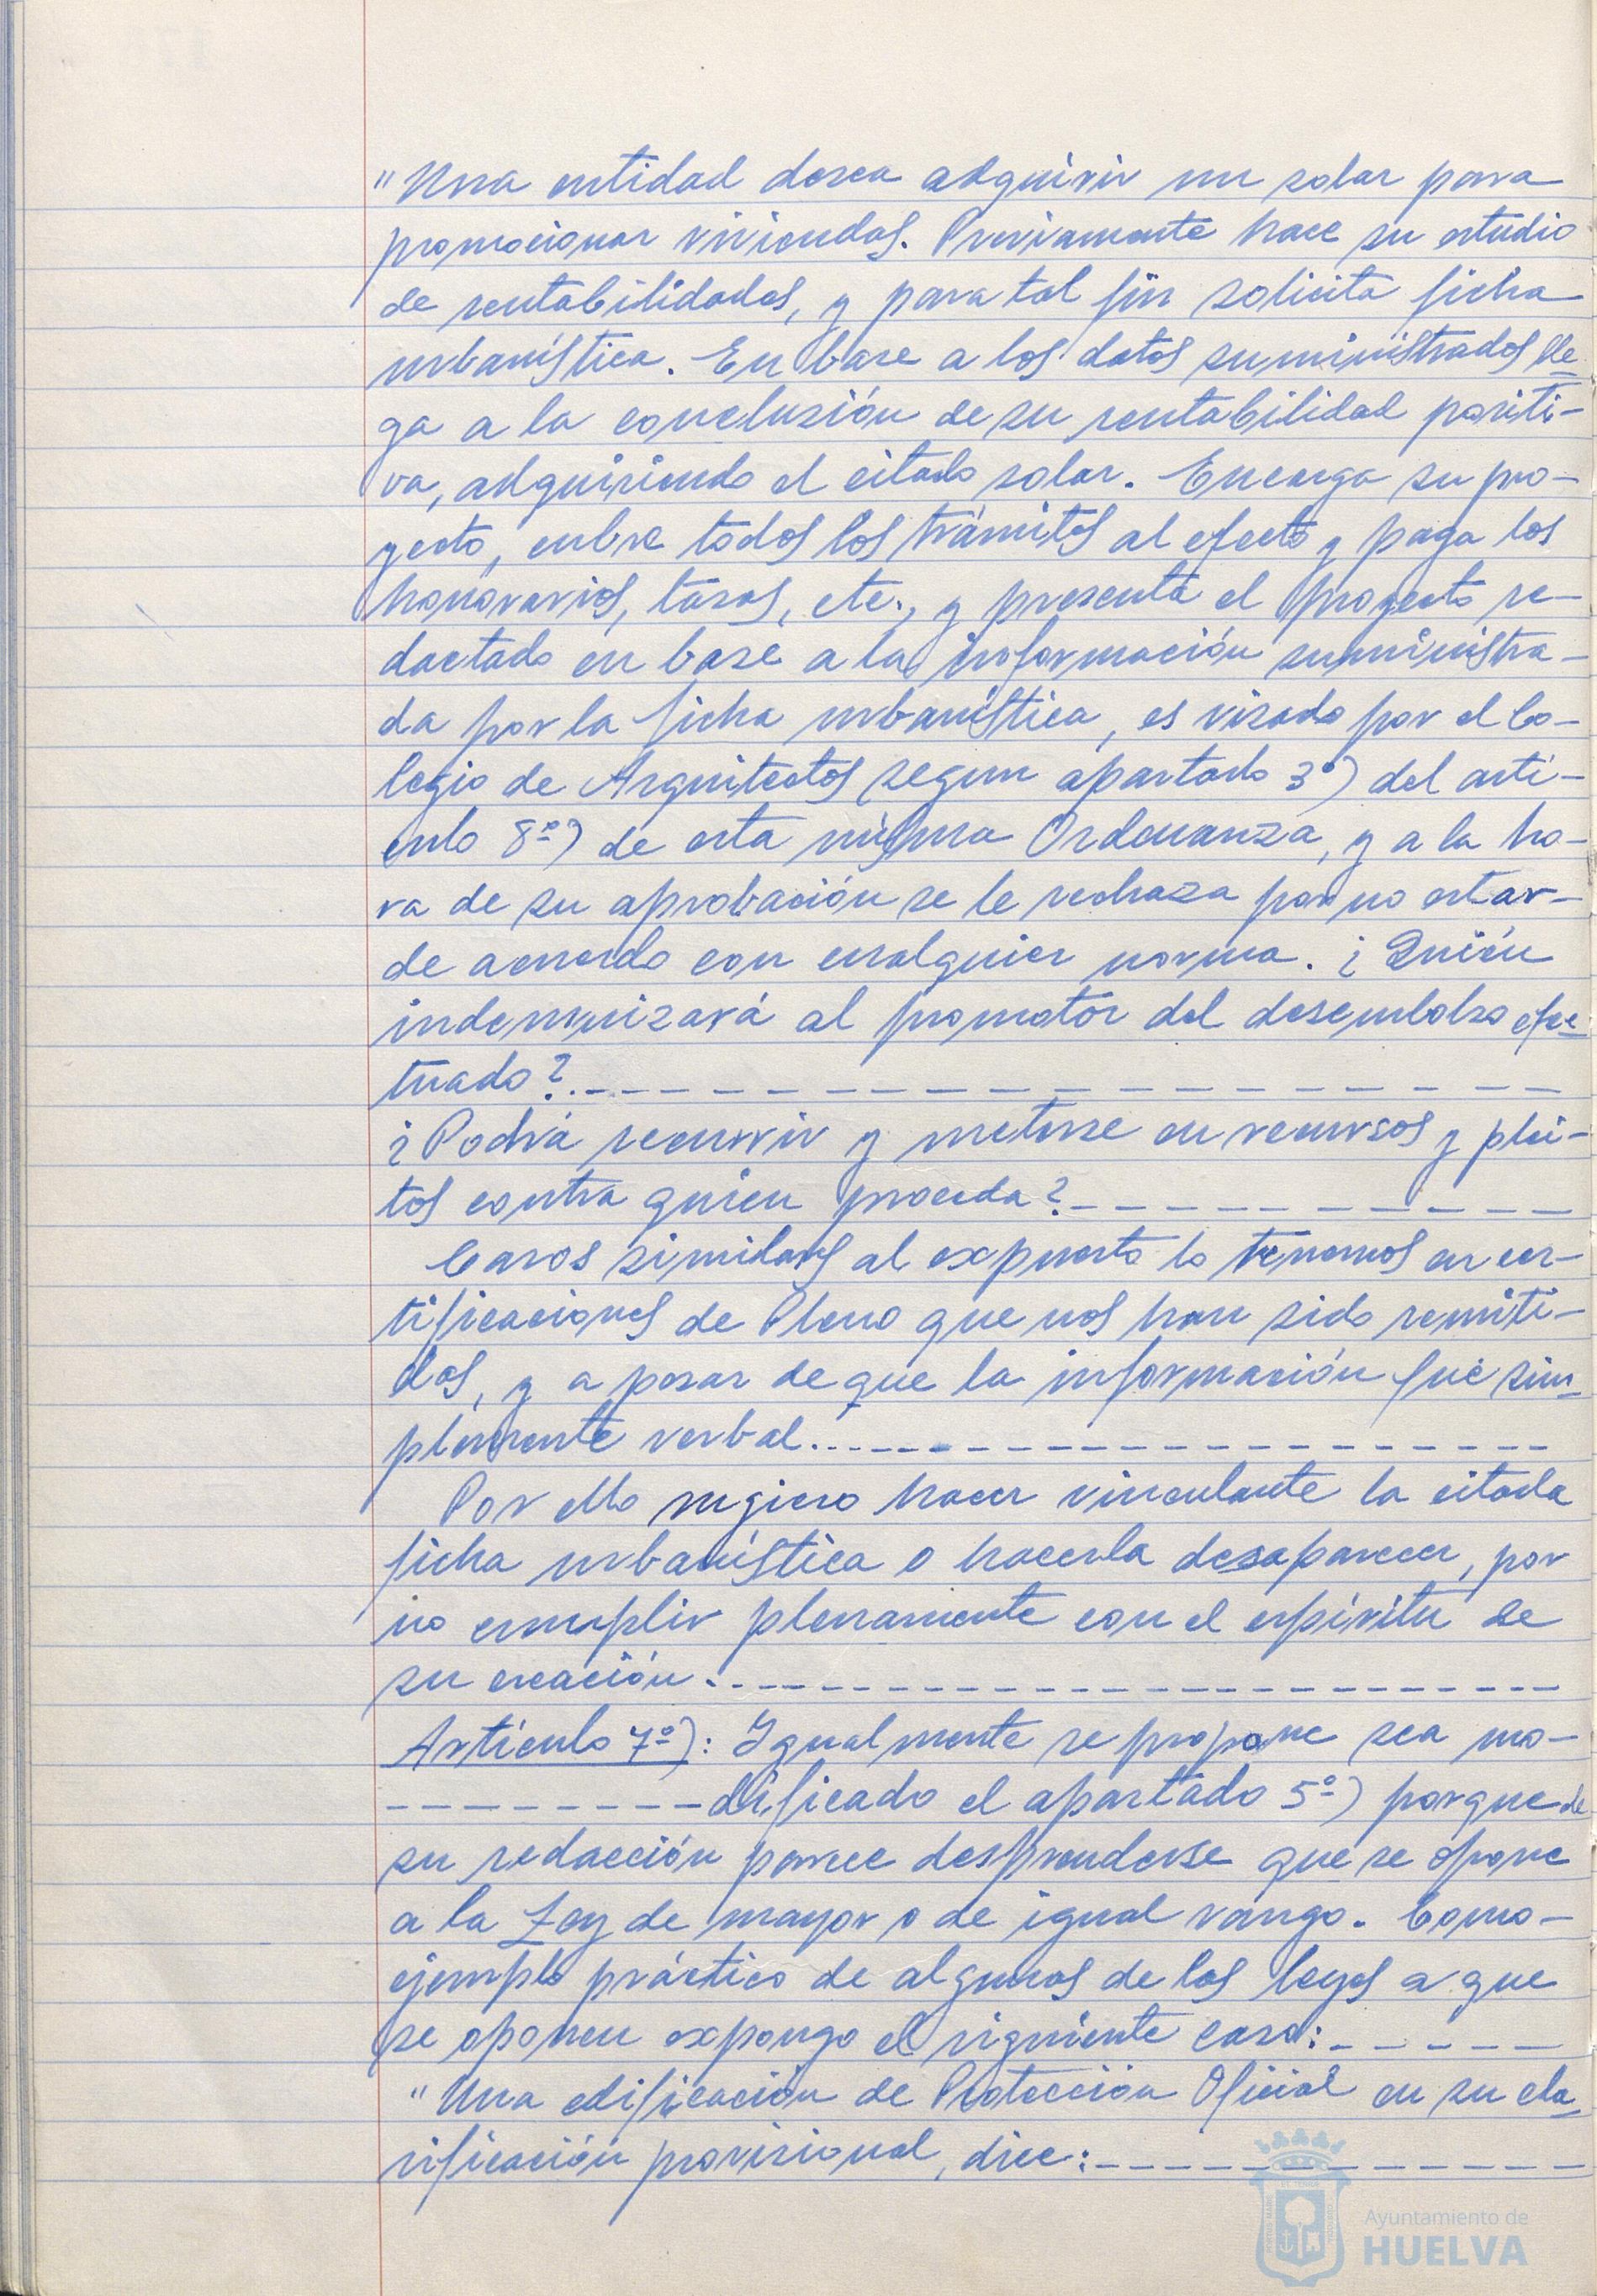 "Una entidad desea adquirir un solar para
promocionar viviendas. Previamente hace su estudio
de rentabilidades, y para tal fin solicita ficha
urbanística. En base a los datos suministrados lle-
ga a la conclusión de su rentabilidad positi-
va, adquiriendo el citado solar. Encarga su pro-
yecto, cubre todos los trámites al efecto y paga los
honorarios, tasas, etc., y presenta el proyecto re-
dactado en base a la información suministra-
da por la ficha urbanística, es visado por el Co-
legio de Arquitectos (segun apartado 3º) del artí-
culo 8º) de esta misma Ordenanza, y a la ho-
ra de su aprobación se le rechaza por no estar-
de acuerdo con cualquier norma. ¿Quién
indemnizará al promotor del desembolso efec-
tuado?.
¿Podrá recurrir y meterse en recursos y plei-
tos contra quien proceda?
Casos similares al expuesto lo tenemos en cer-
tificaciones de Pleno que nos han sido remiti-
dos, y a pesar de que la información fué sim-
plemente verbal.
Por ello sugiero hacer vinculante la citada
ficha urbanística o hacerla desaparecer, por
no cumplir plenamente con el espíritu de
su creación.
Artículo 7º): Igualmente se propone sea mo-
dificado el apartado 5º) porque de
su redacción parece desprenderse que se opone
a la Ley de mayor o de igual rango. Como-
ejemplo práctico de algunas de las leyes a que
se oponen expongo el siguiente caso:
"Una edificación de Protección Oficial en su cla-
sificación provisional, dice:
Ayuntamiento de
HUELVA